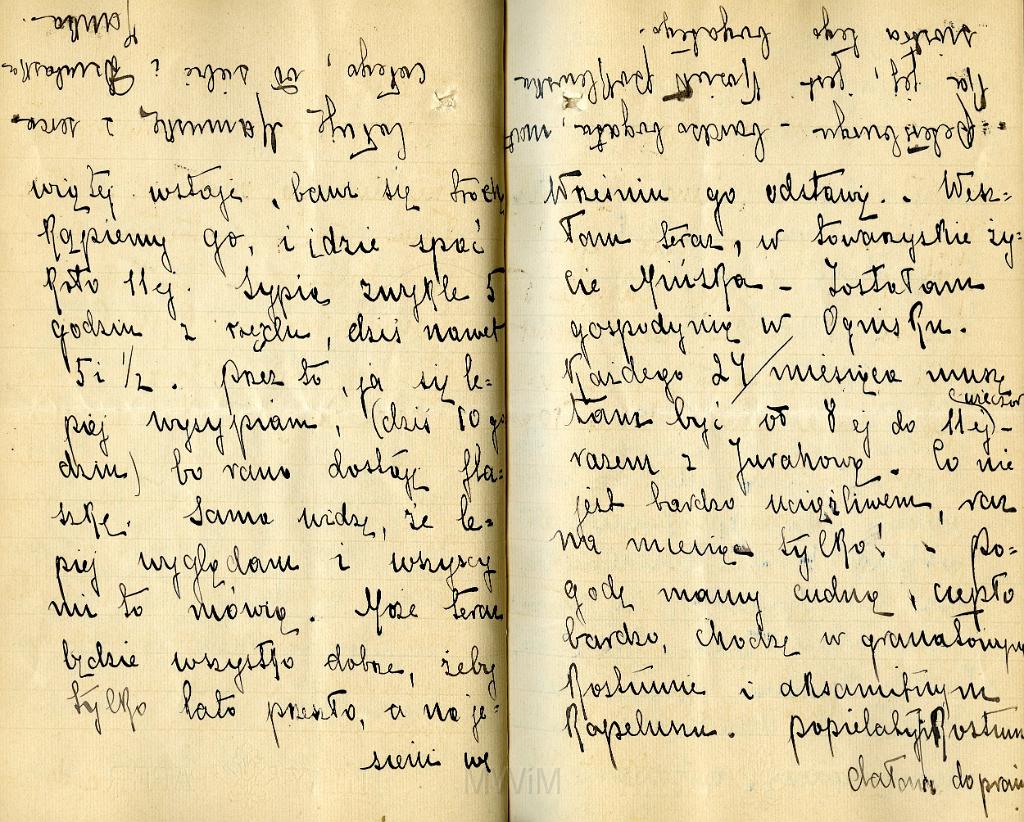 wziętej wstaje, bawi się trochę
kąpiemy go, i idzie spać
koło 11ej. Sypia zwykle 5
godzin z rzędu, dziś nawet
5 i 1/2. Przez to, ja się le=
piej wysypiam, (dziś 10 go
dzin) bo rano dostaję fla=
szkę. Sama widzę, że le=
piej wyglądam i wszyscy
mi to mówią. Może teraz
będzie wszystko dobrze, żeby
tylko lato przeszło, a na je=
sieni we
Wrześniu go odstawię.. Wesz=
łam teraz, w towarzyskie ży=
cie Mińska - Zostałam
gospodynią w Ognisku.
Każdego 24/ miesiąca muszę
tam być od 8 ej do 11ej -
(wieczór)
razem z Jurahową. Co nie
jest bardzo uciążliwem, raz
na miesiąc tylko! - Po=
godę mamy cudną, ciepło
bardzo, chodzę w granatowym
kostiumie i aksamitnym
kapeluszu. popielaty kostium
dałam do prani
Petersburgu - bardzo bogata, mat
ka jej, jest
siostra tego bogatego.
Całuję Mamusię z serca
całego, od siebie i
Janka.
MWiM